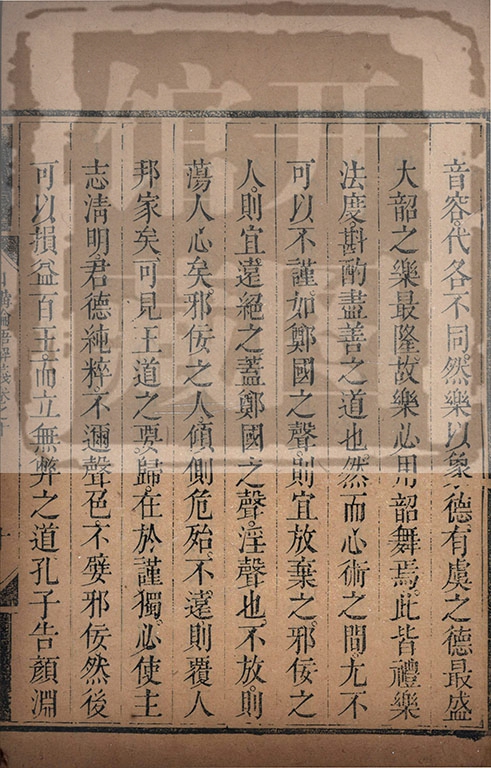 音容代各不同然樂以象德有虞之德最盛
大韶之樂最隆故樂必用韶舞焉此皆禮樂
法度斟酌盡善之道也然而心術之間尤不
可以不謹如鄭國之聲則宜放棄之邪佞之
人則宜遠絕之蓋鄭國之聲淫聲也不放則
蕩人心矣邪佞之人傾側危殆不遠則覆人
邦家矣可見王道之要歸在於謹獨必使主
志清明君德純粹不邇聲色不嬖邪佞然後
可以損益百王而立無弊之道孔子告顏淵